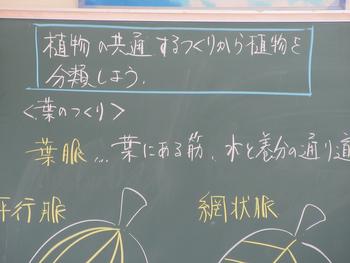 植物の共通するつくりから植物を
分類しよう.
<葉のつくり>
葉脈…葉にある筋.水と養分の通り道
平行脈
網状脈